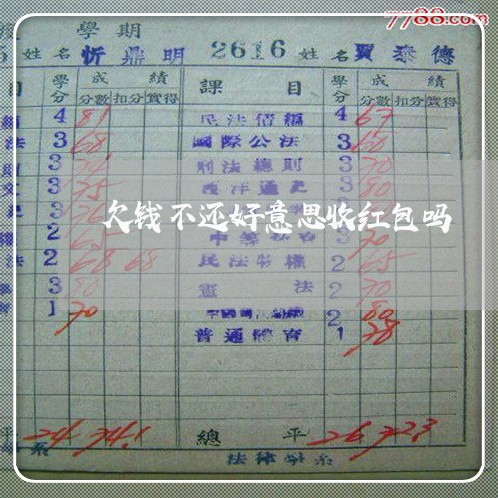 7788.com
學期
姓名 忻鼎明 2616 姓名 賈泰德
目 學分 成績 課目 學分 成績
分數 扣分 實得 分數 扣分 實得
4 81 民法債編 4 67
法 3 68 國際公法 3 60
3 刑法總則 3 70
3 75 西洋通史 3 80
欠钱不还好意思收红包吗
2 3 70
法 2 68 68 民法物權 2 65
3 80 憲法 2 70
1 70 2 80
普通體育 1 78
平 24 74.1 總平 26 72.3
系 法律學系